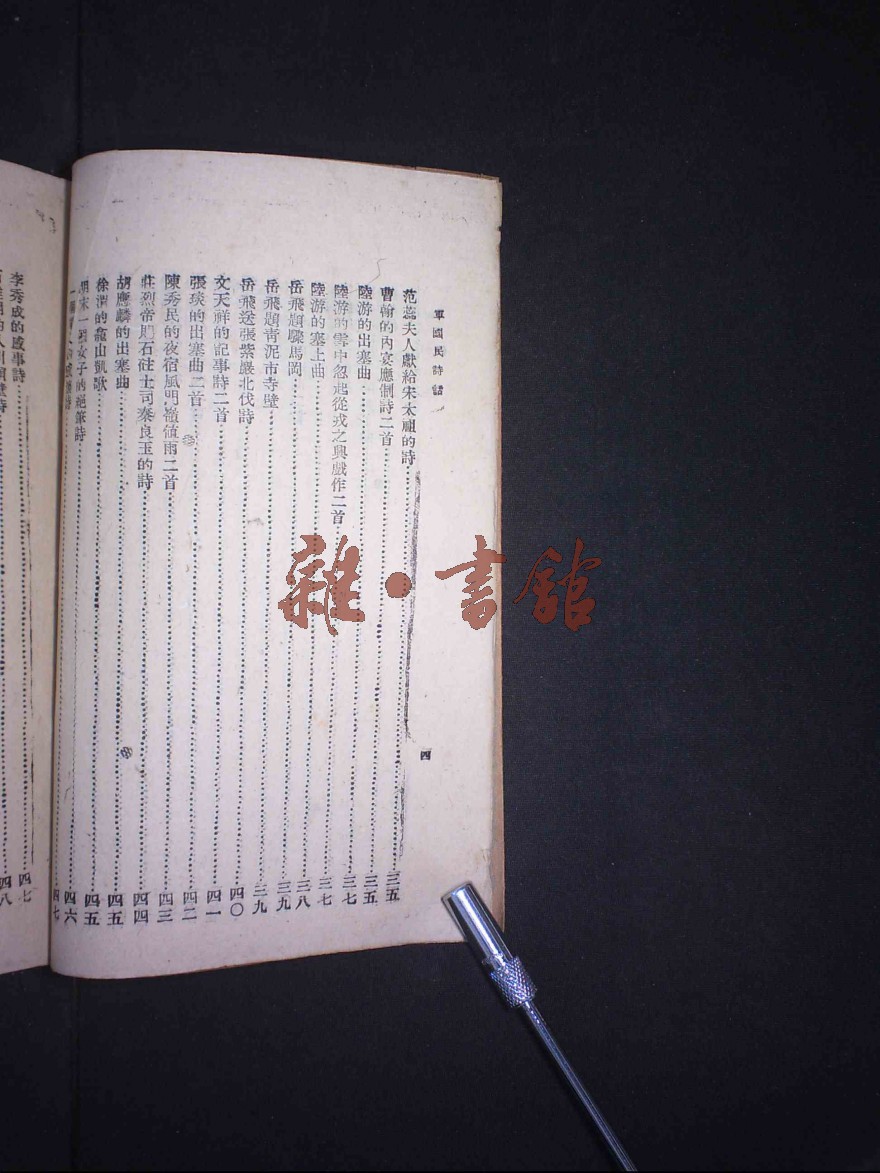 軍國民詩話
四
范蕊夫人獻給宋太祖的詩
曹翰的內宴應制詩二首 三五
陸游的出塞曲 三五
陸游的雪中忽起從戎之興戲作二首 三七
陸游的塞上曲 三七
岳飛題驟馬岡 三八
岳飛題青泥市寺壁 三九
岳飛送張紫巖北伐詩 三九
文天祥的記事詩二首 四〇
張琰的出塞曲二首 四一
陳秀民的夜宿風門嶺値雨二首 四二
莊烈帝賜石砫土司秦良玉的詩 四三
胡應麟的出塞曲 四四
徐渭的龕山凱歌 四五
明末一個女子的絕筆詩 四五
四六
四七
李秀成的感事詩 四七
四八
雜·書館